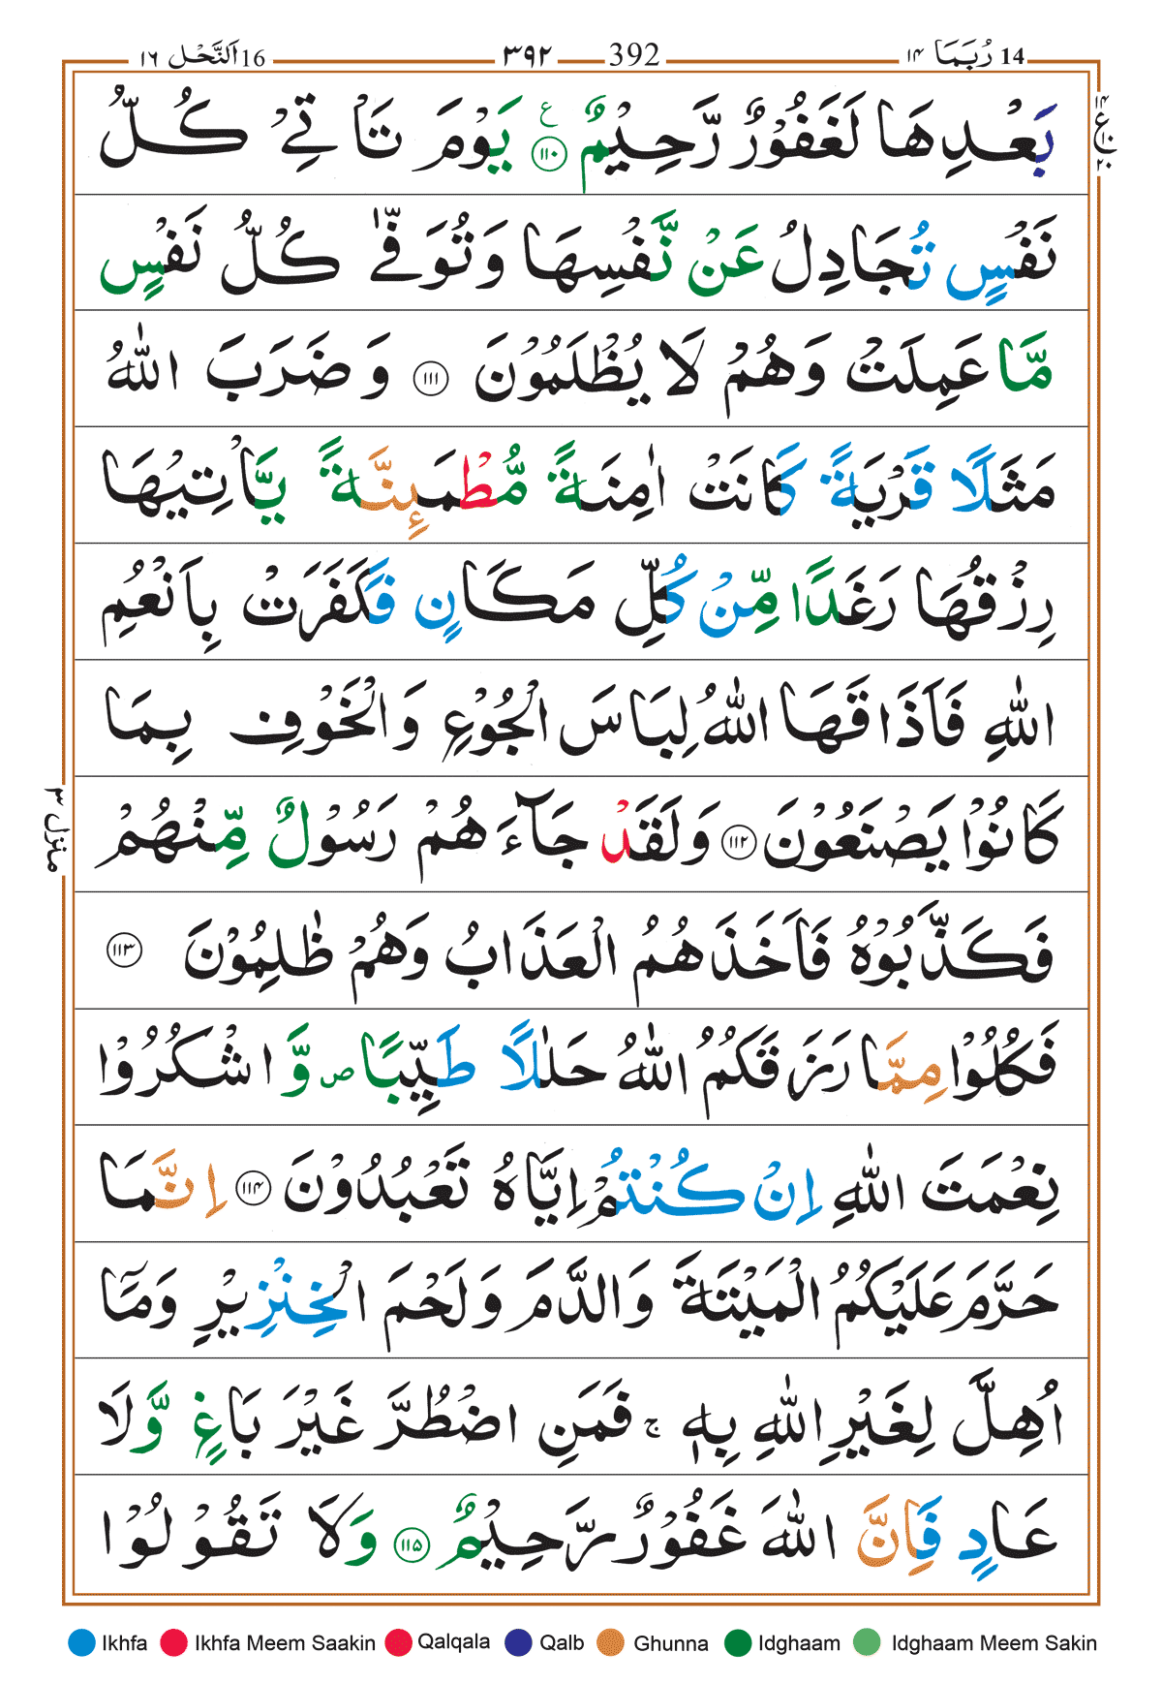 14 رُبَمَا ١٤ 392 ٣٩٢ 16 اَلنَّحۡل ١٦
بَعۡدِهَا لَغَفُوۡرٌ رَّحِيۡمٌ ﴿۱۱۰﴾ ع يَوۡمَ تَاۡتِىۡ كُلُّ
نَفۡسٍ تُجَادِلُ عَنۡ نَّفۡسِهَا وَتُوَفّٰى كُلُّ نَفۡسٍ
مَّا عَمِلَتۡ وَهُمۡ لَا يُظۡلَمُوۡنَ ﴿۱۱۱﴾ وَضَرَبَ اللّٰهُ
مَثَلًا قَرۡيَةً كَانَتۡ اٰمِنَةً مُّطۡمَٮِٕنَّةً يَّاۡتِيۡهَا
رِزۡقُهَا رَغَدًا مِّنۡ كُلِّ مَكَانٍ فَكَفَرَتۡ بِاَنۡعُمِ
اللّٰهِ فَاَذَاقَهَا اللّٰهُ لِبَاسَ الۡجُوۡعِ وَالۡخَوۡفِ بِمَا
كَانُوۡا يَصۡنَعُوۡنَ ﴿۱۱۲﴾ وَلَقَدۡ جَآءَهُمۡ رَسُوۡلٌ مِّنۡهُمۡ
فَكَذَّبُوۡهُ فَاَخَذَهُمُ الۡعَذَابُ وَهُمۡ ظٰلِمُوۡنَ ﴿۱۱۳﴾
فَكُلُوۡا مِمَّا رَزَقَكُمُ اللّٰهُ حَلٰلًا طَيِّبًا ص وَّاشۡكُرُوۡا
نِعۡمَتَ اللّٰهِ اِنۡ كُنۡتُمۡ اِيَّاهُ تَعۡبُدُوۡنَ ﴿۱۱۴﴾ اِنَّمَا
حَرَّمَ عَلَيۡكُمُ الۡمَيۡتَةَ وَالدَّمَ وَلَحۡمَ الۡخِنۡزِيۡرِ وَمَاۤ
اُهِلَّ لِغَيۡرِ اللّٰهِ بِهٖ ج فَمَنِ اضۡطُرَّ غَيۡرَ بَاغٍ وَّلَا
عَادٍ فَاِنَّ اللّٰهَ غَفُوۡرٌ رَّحِيۡمٌ ﴿۱۱۵﴾ وَلَا تَقُوۡلُوۡا
١٤ ع ١٠ ٢٠
منزل ٣
Ikhfa Ikhfa Meem Saakin Qalqala Qalb Ghunna Idghaam Idghaam Meem Sakin